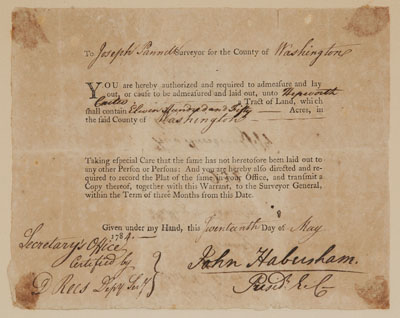 To Joseph Pannel Surveyor for the County of Washington
YOU are hereby authorized and required to admeasure and lay
out, or cause to be admeasured and laid out, unto Hepworth
Carter a Tract of Land, which
shall contain Eleven Hundred and Fifty Acres, in
the said County of Washington
Taking especial Care that the same has not heretofore been laid out to
any other Person or Persons: And you are hereby also directed and re-
quired to record the Plat of the same in your Office, and transmit a
Copy thereof, together with this Warrant, to the Surveyor General,
within the Term of three Months from this Date.
Given under my Hand, this Day of May
1784.
Secretary's Office
Certified by
D Rees Depy Secy
John Habersham.
Presd. E. C.